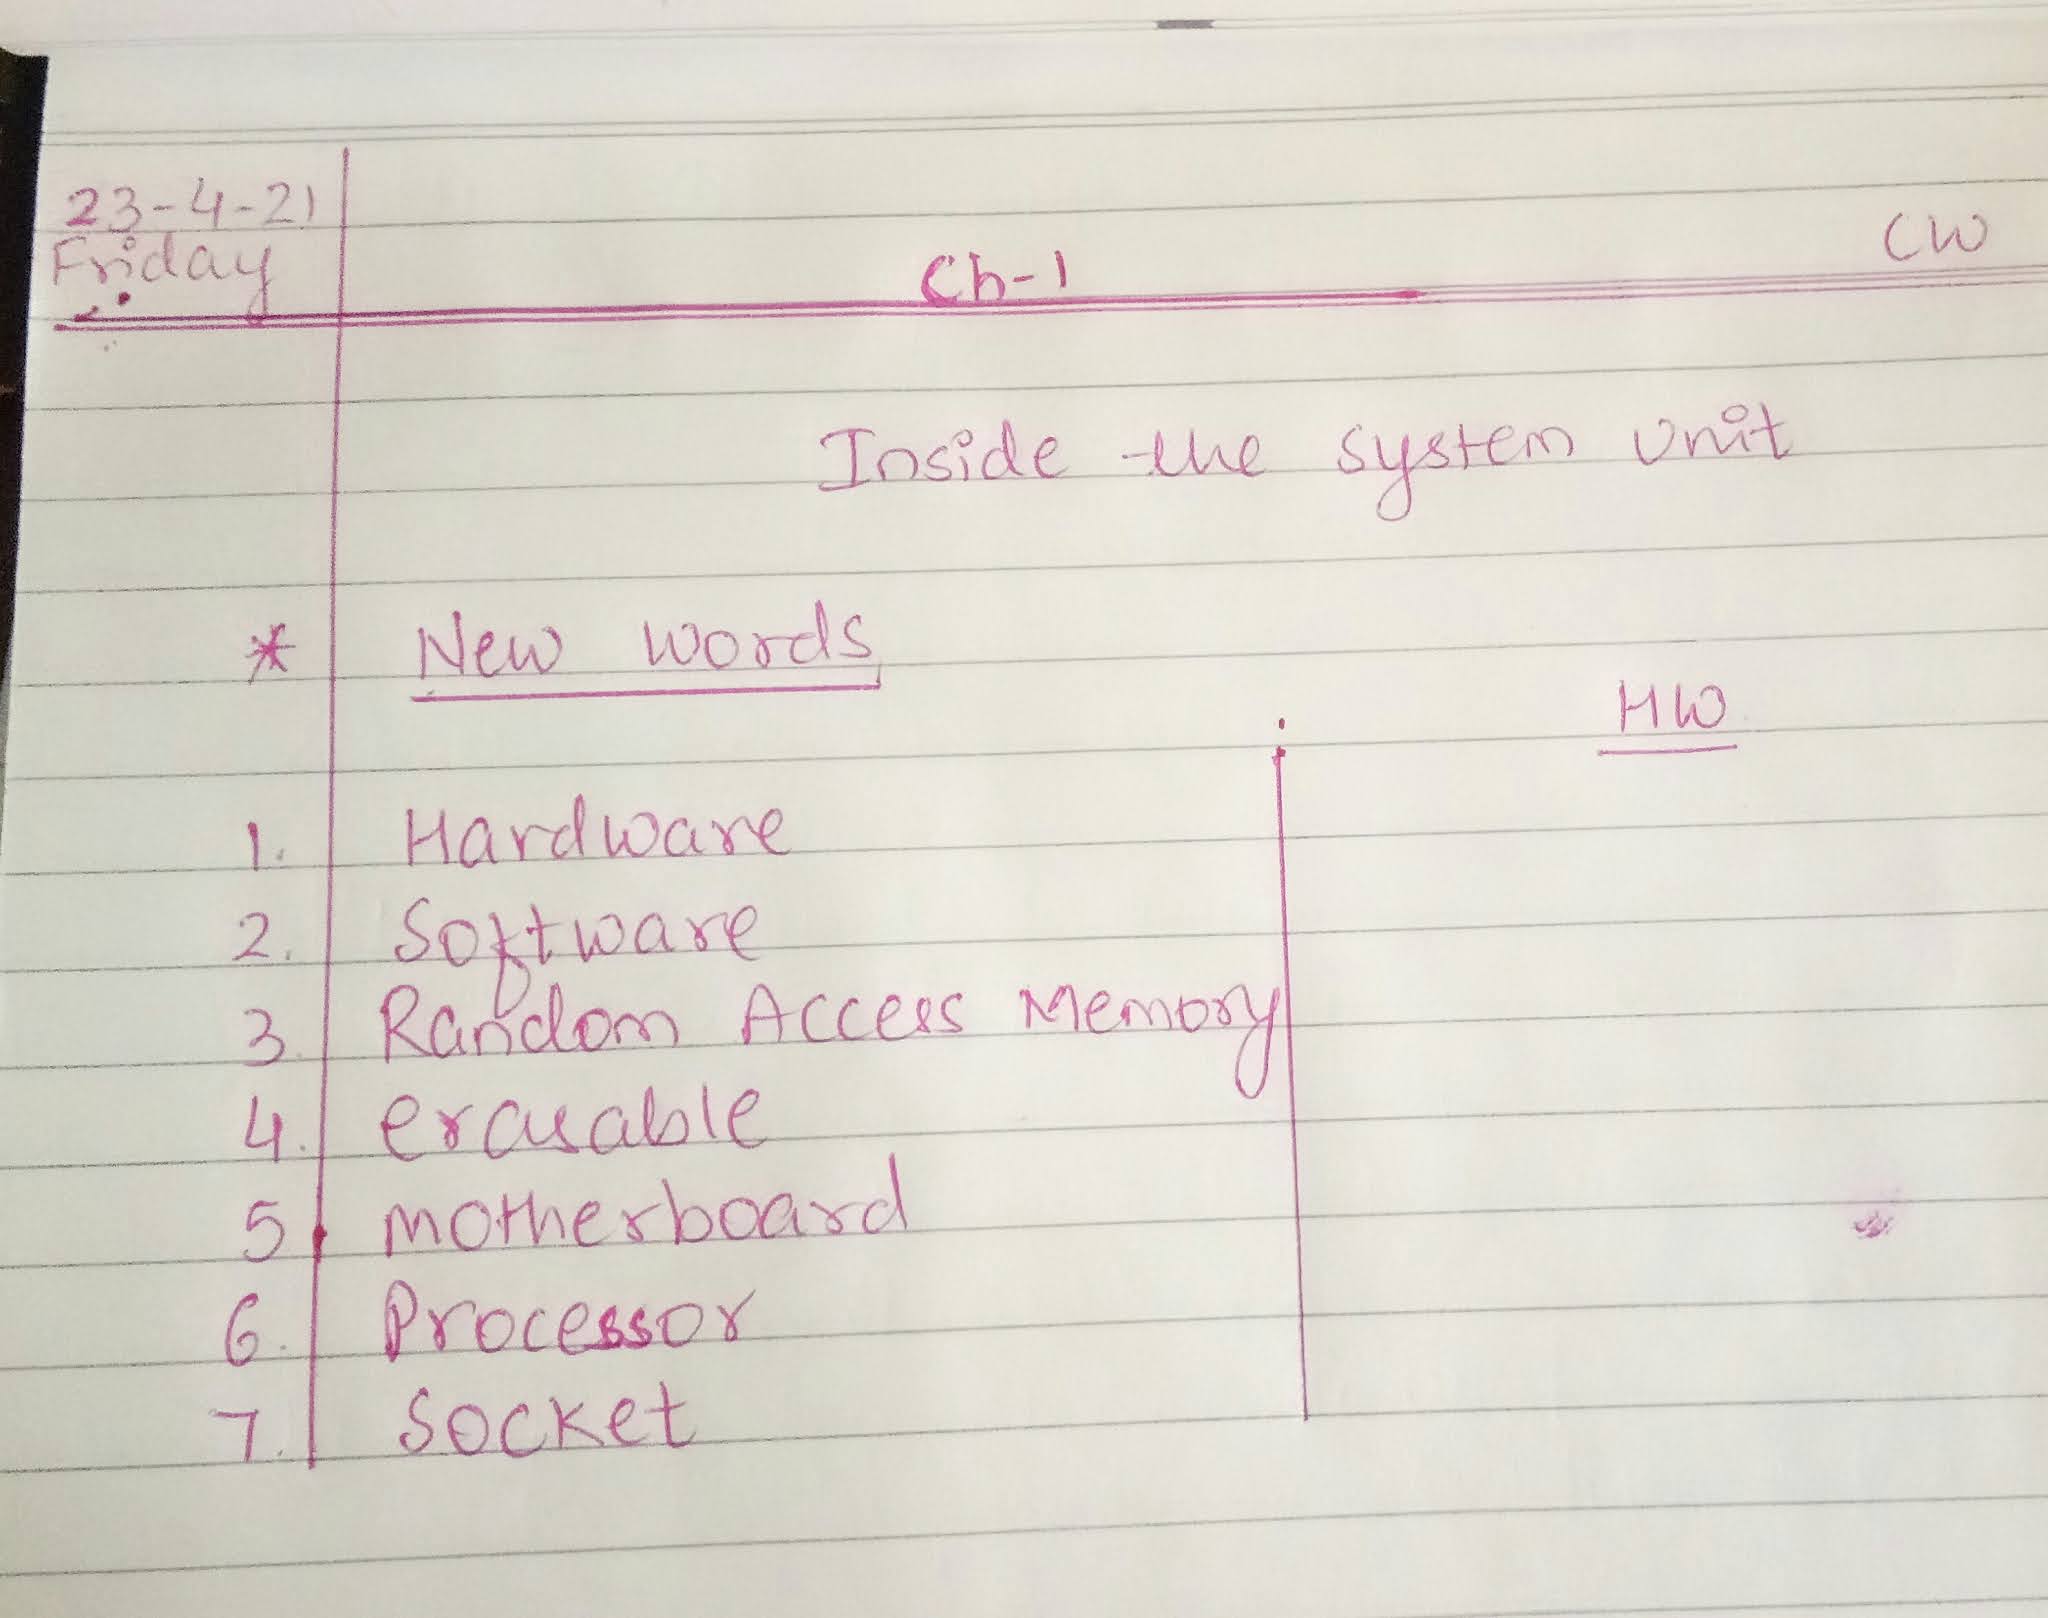 23-4-21
Friday
Ch-1
CW
Inside the system unit
* New words
HW
1. Hardware
2. Software
3. Random Access Memory
4. erasable
5. motherboard
6. Processor
7. Socket